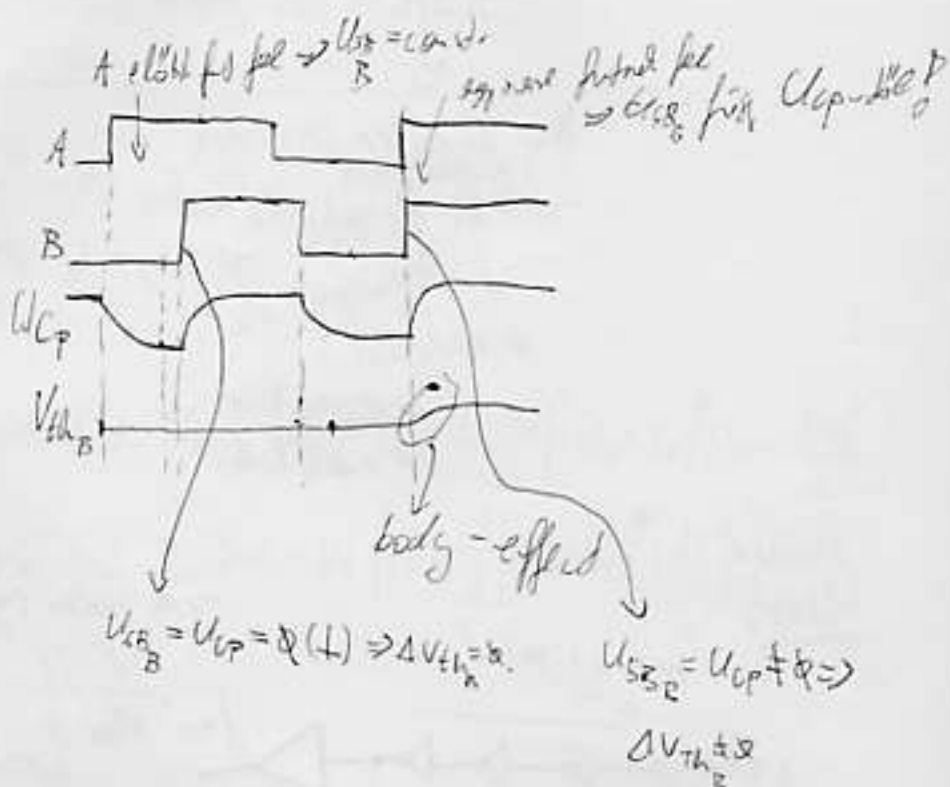 A előbb fut fel ⇒ U_SB_B = const.
egyszerre futnak fel
⇒ U_SB_B függ U_Cp-től!
A
B
U_Cp
V_th_B
body-effect
U_SB_B = U_Cp = 0 (⊥) ⇒ ΔV_th_B = 0.
U_SB_B = U_Cp ≠ 0 ⇒
ΔV_Th_B ≠ 0